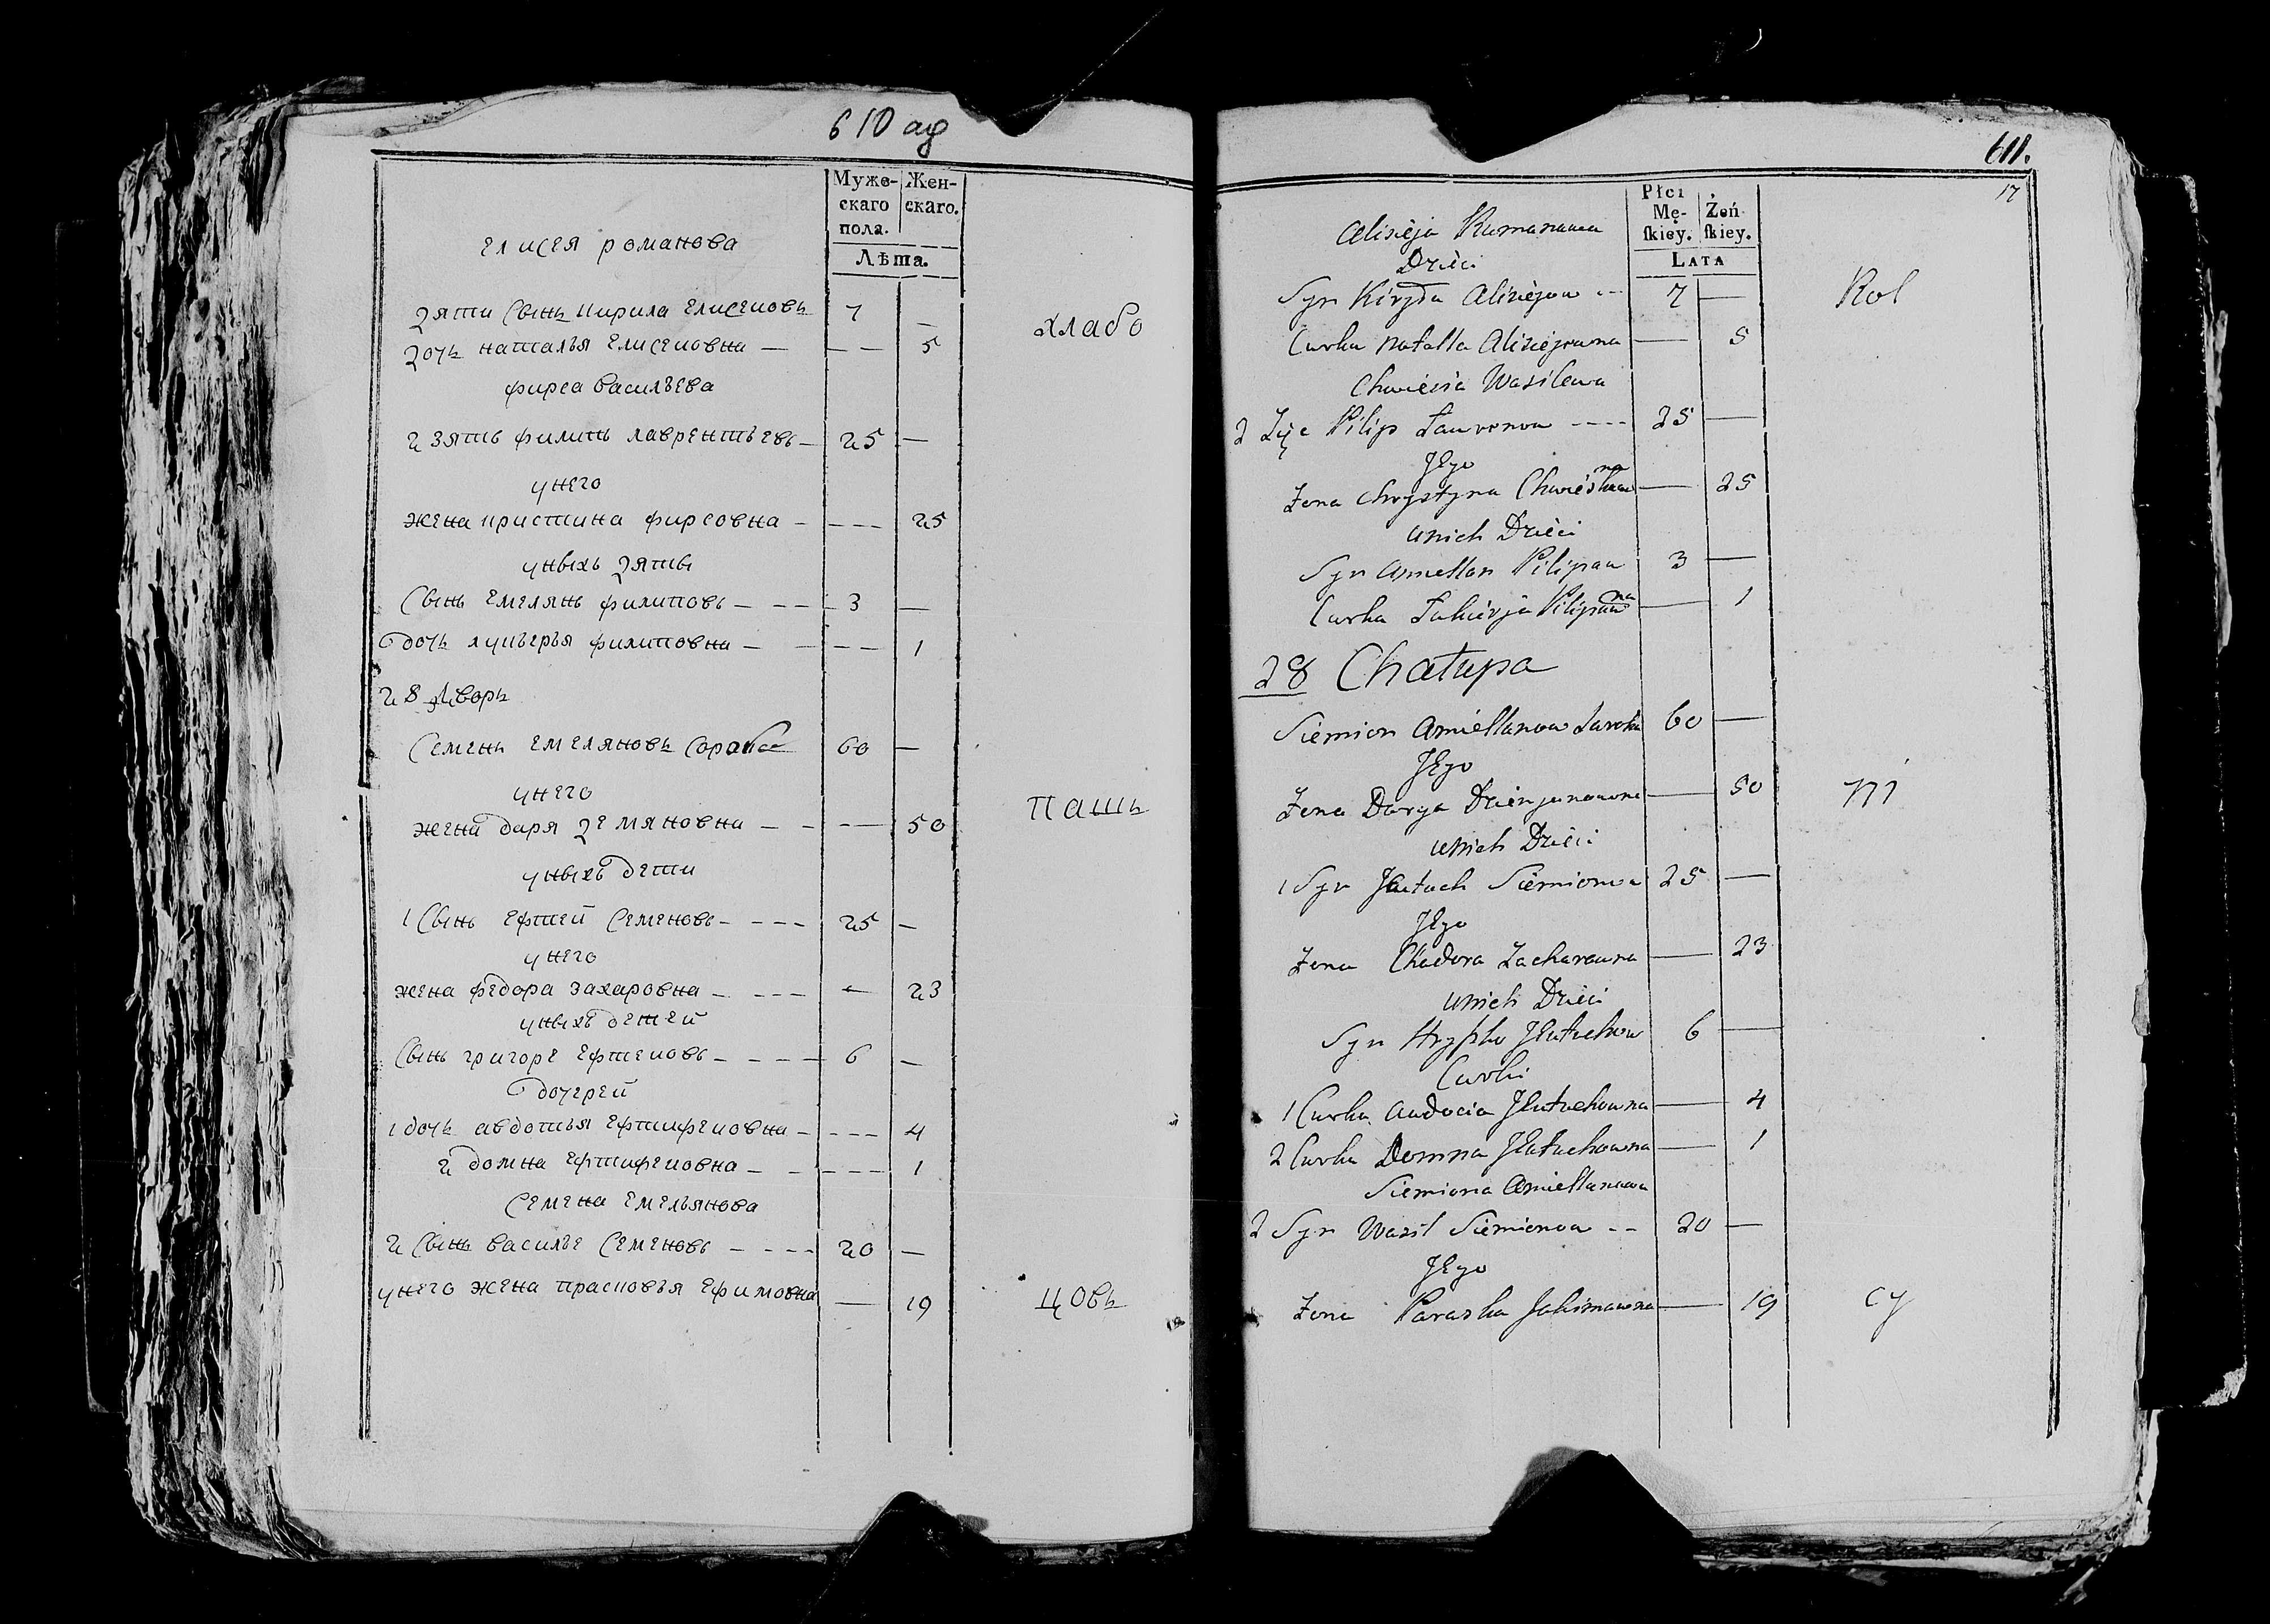 610 об
Муже-
скаго
пола.
Жен-
скаго.
Лѣта.
елисея романова
дяти Сынъ кирила елисеновъ 7 —
дочъ наталья елисеновна — — — 5
хлабо
фирса васильева
2 зять филипъ лаврентьевъ — 25 —
у него
жена кристина фирсовна — — — — 25
уныхъ дяты
Сынъ емелянъ филиповъ — — — 3 —
дочъ лукерья филиповна — — — — 1
28 Дворъ
Семенъ емеляновъ 60 —
унего
жена даря демяновна — — — — 50
пашъ
уныхъ дети
1 Сынъ ефтей Семеновъ — — — — 25 —
унего
жена федора захаровна — — — — — 23
уныхъ детей
Сынъ григоре ефтеновъ — — — — 6 —
дочерей
1 дочъ авдотья ефтифеновна — — — — 4
2 домна ефтифеновна — — — — — 1
Семена емельянова
2 Сынъ василье Семеновъ — — — — 20 —
унего жена прасковья ефимовна — 19
цовъ
611.
17
Płci
Mę-
skiey.
Żeń-
skiey.
LATA
Alisieja Ramanawa
Dzieci
Syn Kiryła Alisiejow -- 7 —
Rol
Curka Natalla Alisiejowna — 5
Chwiesia Wasilewa
2 Zięc Pilip Laurenow ---- 25 —
Jego
Żona Chrystyna Chwieskowna — 25
unich Dzieci
Syn Amiellan Pilipau 3 —
Curka Łukierja Pilipauna — 1
28 Chałupa
Siemion Amiellanow 60 —
Jego
Żona Darya Dziemjanowna — 50
ni
unich Dzieci
1 Syn Jłutuch Siemionow 25 —
Jego
Żona Chadora Zacharowna — 23
unich Dzieci
Syn Hryszko Jłutuchow 6 —
Curki
1 Curka Audocia Jłutuchowna — 4
2 Curka Domna Jłutuchowna — 1
Siemiona Amiellanowa
2 Syn Wasil Siemionow -- 20 —
Jego
Żona Paraska Jakimowna — 19
cy